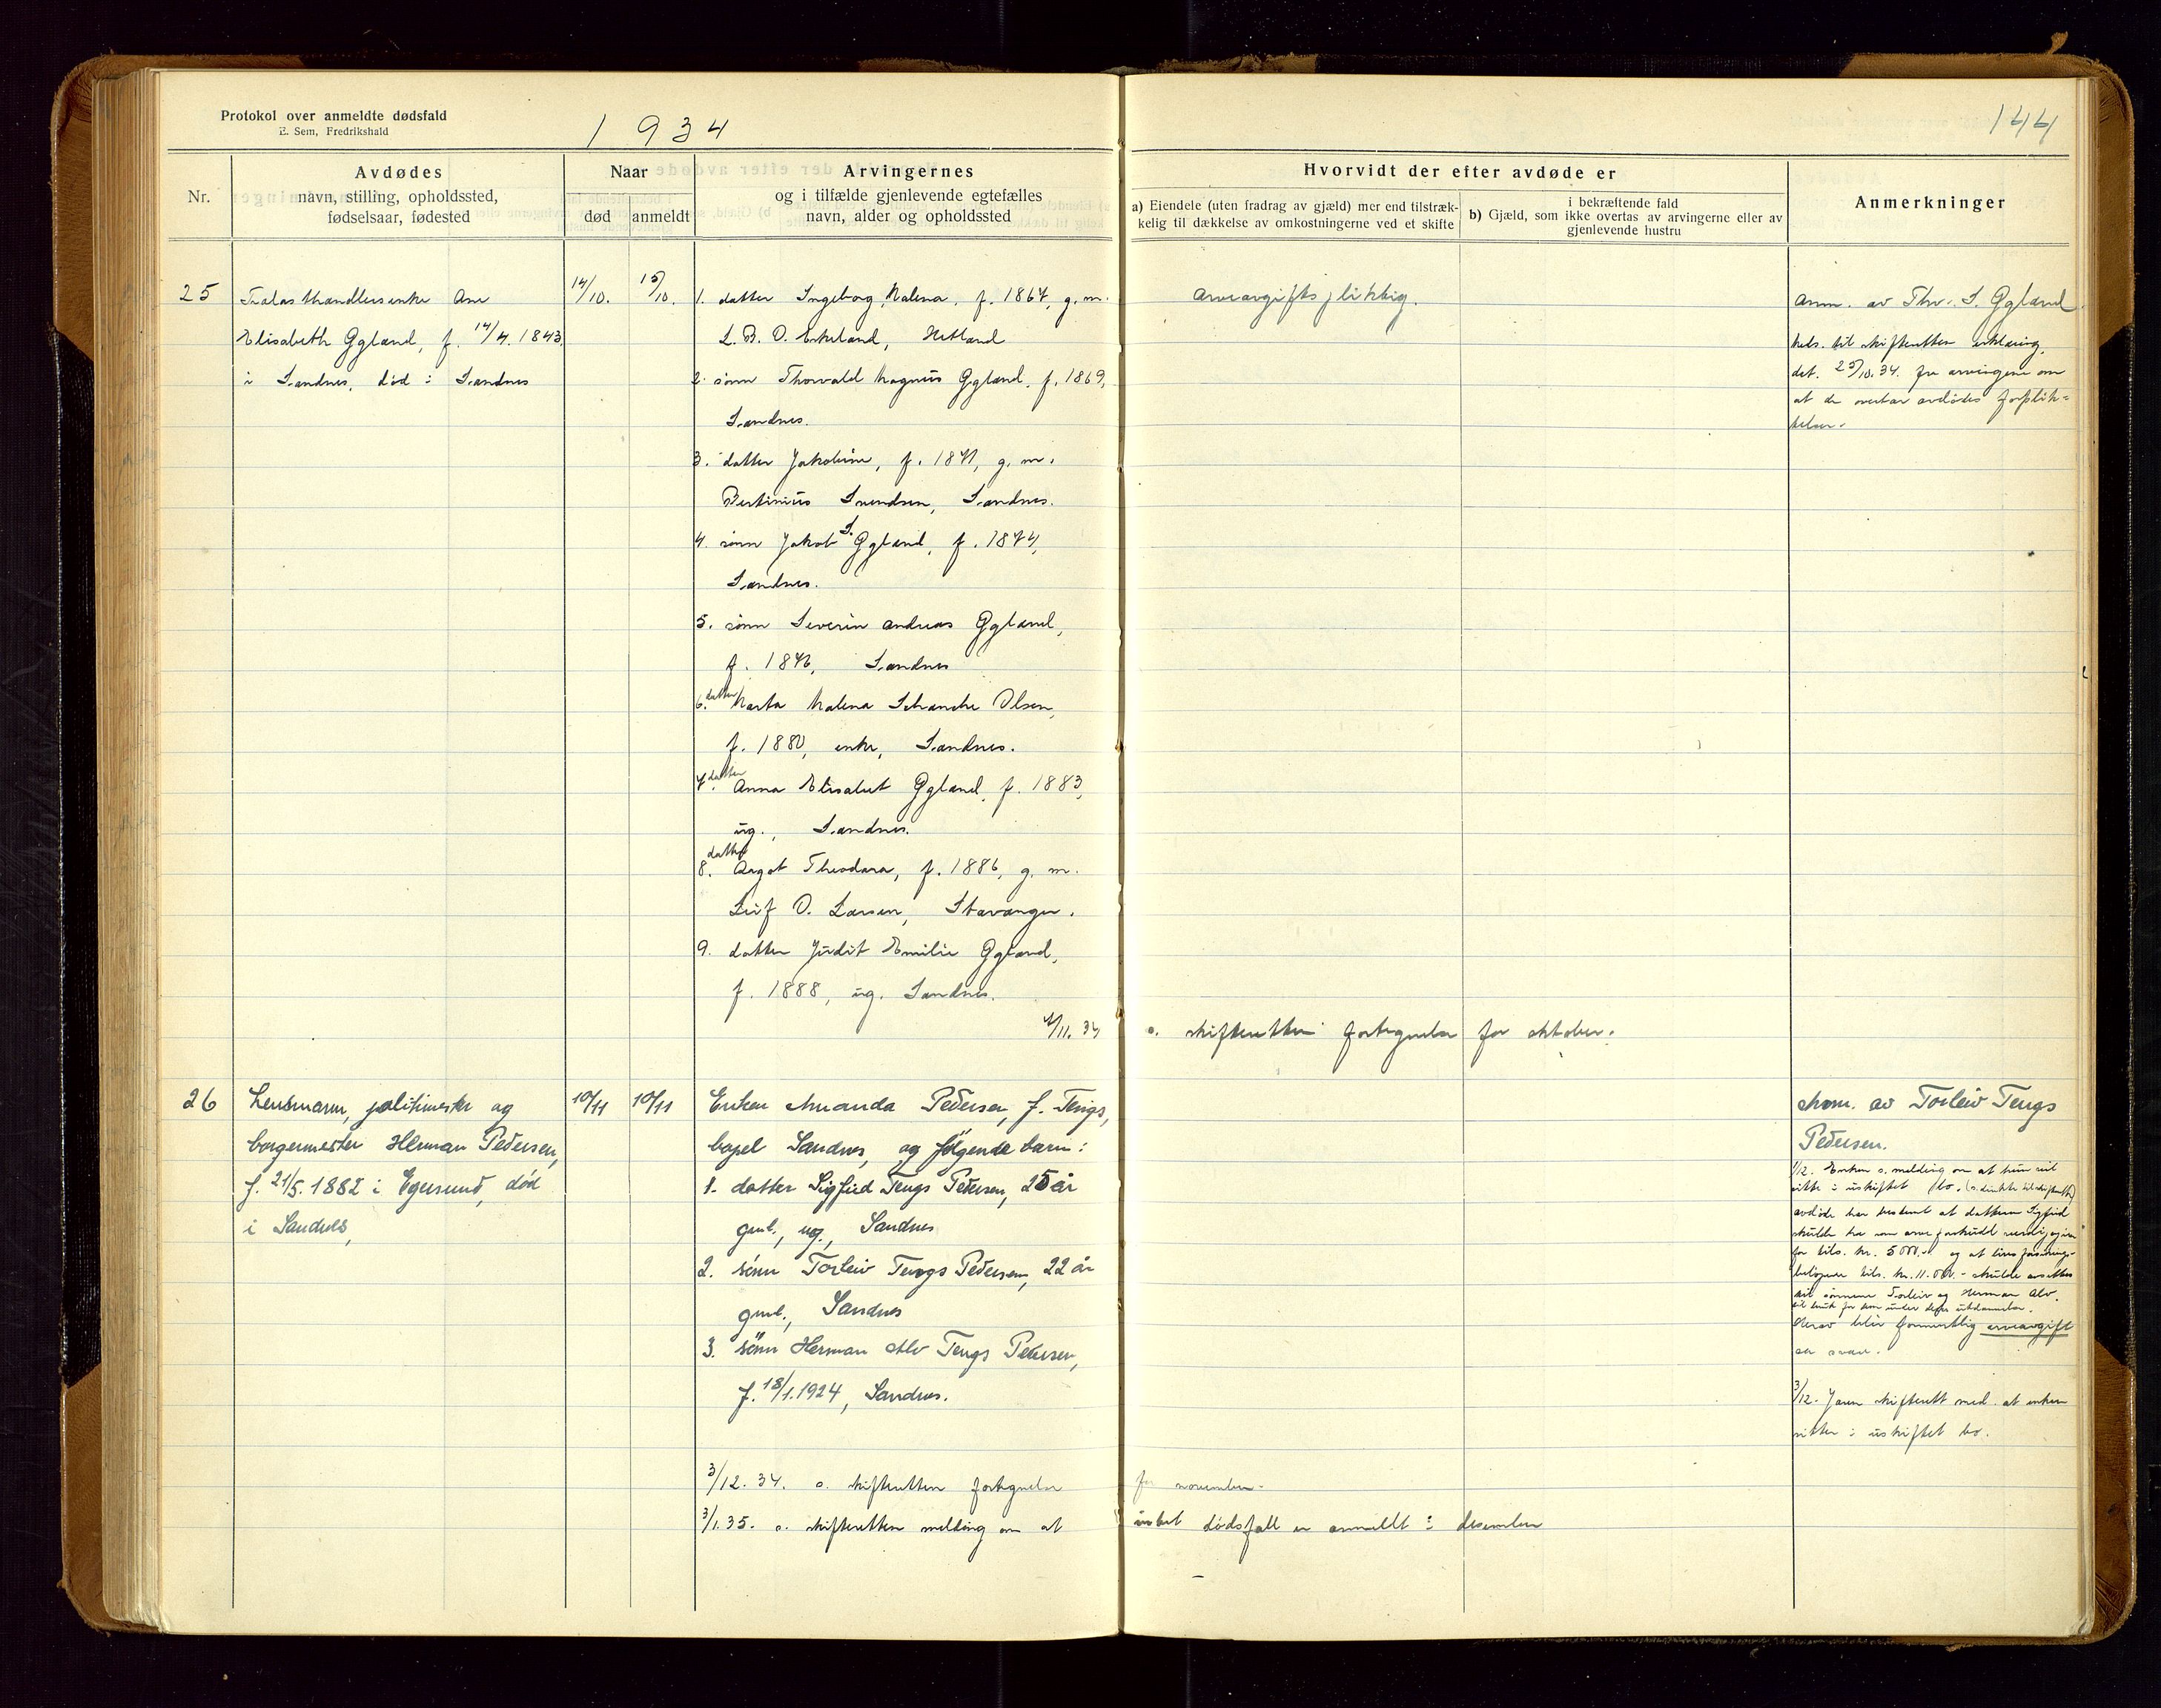 Protokol over anmeldte dødsfald
E. Sem, Fredrikshald
1934
144
Nr.
Avdødes
navn, stilling, opholdssted,
fødselsaar, fødested
Naar
død
anmeldt
Arvingernes
og i tilfælde gjenlevende egtefælles
navn, alder og opholdssted
Hvorvidt der efter avdøde er
a) Eiendele (uten fradrag av gjæld) mer end tilstræk-
kelig til dækkelse av omkostningerne ved et skifte
i bekræftende fald
b) Gjæld, som ikke overtas av arvingerne eller av
gjenlevende hustru
Anmerkninger
25
Trelasthandlersenke Ane
Elisabeth Ggland, f. 14/4. 1843,
i Sandnes, død i Sandnes
14/10.
15/10.
1. datter Ingeborg Malena, f. 1867, g. m.
L. B. O. Erkeland, Hetland
2. sønn Thorvald Magnus Ggland, f. 1869,
Sandnes.
3. datter Jakobine, f. 1871, g. m.
Bertinius Svendsen, Sandnes.
4. sønn Jakob S. Ggland, f. 1874,
Sandnes.
5. sønn Severin Andreas Ggland,
f. 1876, Sandnes
6. datter Marta Malena Schanche Olsen,
f. 1880, enke, Sandnes.
7. datter Anna Elisabet Ggland, f. 1883,
ug., Sandnes.
8. datter Aagot Theodora, f. 1886, g. m.
Leif O. Larsen, Stavanger.
9. datter Judit Emilie Ggland,
f. 1888, ug. Sandnes.
arveavgiftspliktig.
Anm. av Thv. S. Ggland.
Meds. til skifteretten erklæring,
dat. 25/10.34. fra arvingene om
at de overtar avdødes forplik=
telser.
1/11. 34 s. skifteretten fortegnelse for oktober.
26
Lensmann, politimester og
borgermester Herman Pedersen,
f. 21/5. 1882 i Egersund, død
i Sandnes,
10/11
10/11
Enken Amanda Pedersen, f. Tengs,
bopel Sandnes, og følgende barn:
1. datter Sigfrid Tengs Pedersen, 25 år
gml., ug., Sandnes
2. sønn Torleiv Tengs Pedersen, 22 år
gml., Sandnes
3. sønn Herman Alv Tengs Pedersen,
f. 18/1.1924, Sandnes.
Anm. av Torleiv Tengs
Pedersen.
1/12. Enken s. melding om at hun vil
sitte i uskiftet bo. (s. direkte til skifteretten)
avdøde har bestemt at datteren Sigfrid
skulde ha som arveforskudd
for tils. kr. 5000.- og at livsforsikrings-
beløpene tils. kr. 11.000.- skulde avsettes
til sønnene Torleiv og Herman Alv.
til bruk for dem under deres utdannelse.
Herav blir formentlig arveavgift
å svare.
3/12. Jæren skifterett med. at enken
sitter i uskiftet bo.
3/12. 34. s. skifteretten fortegnelse for november.
3/1.35. s. skifteretten melding om at intet dødsfall er anmeldt i desember